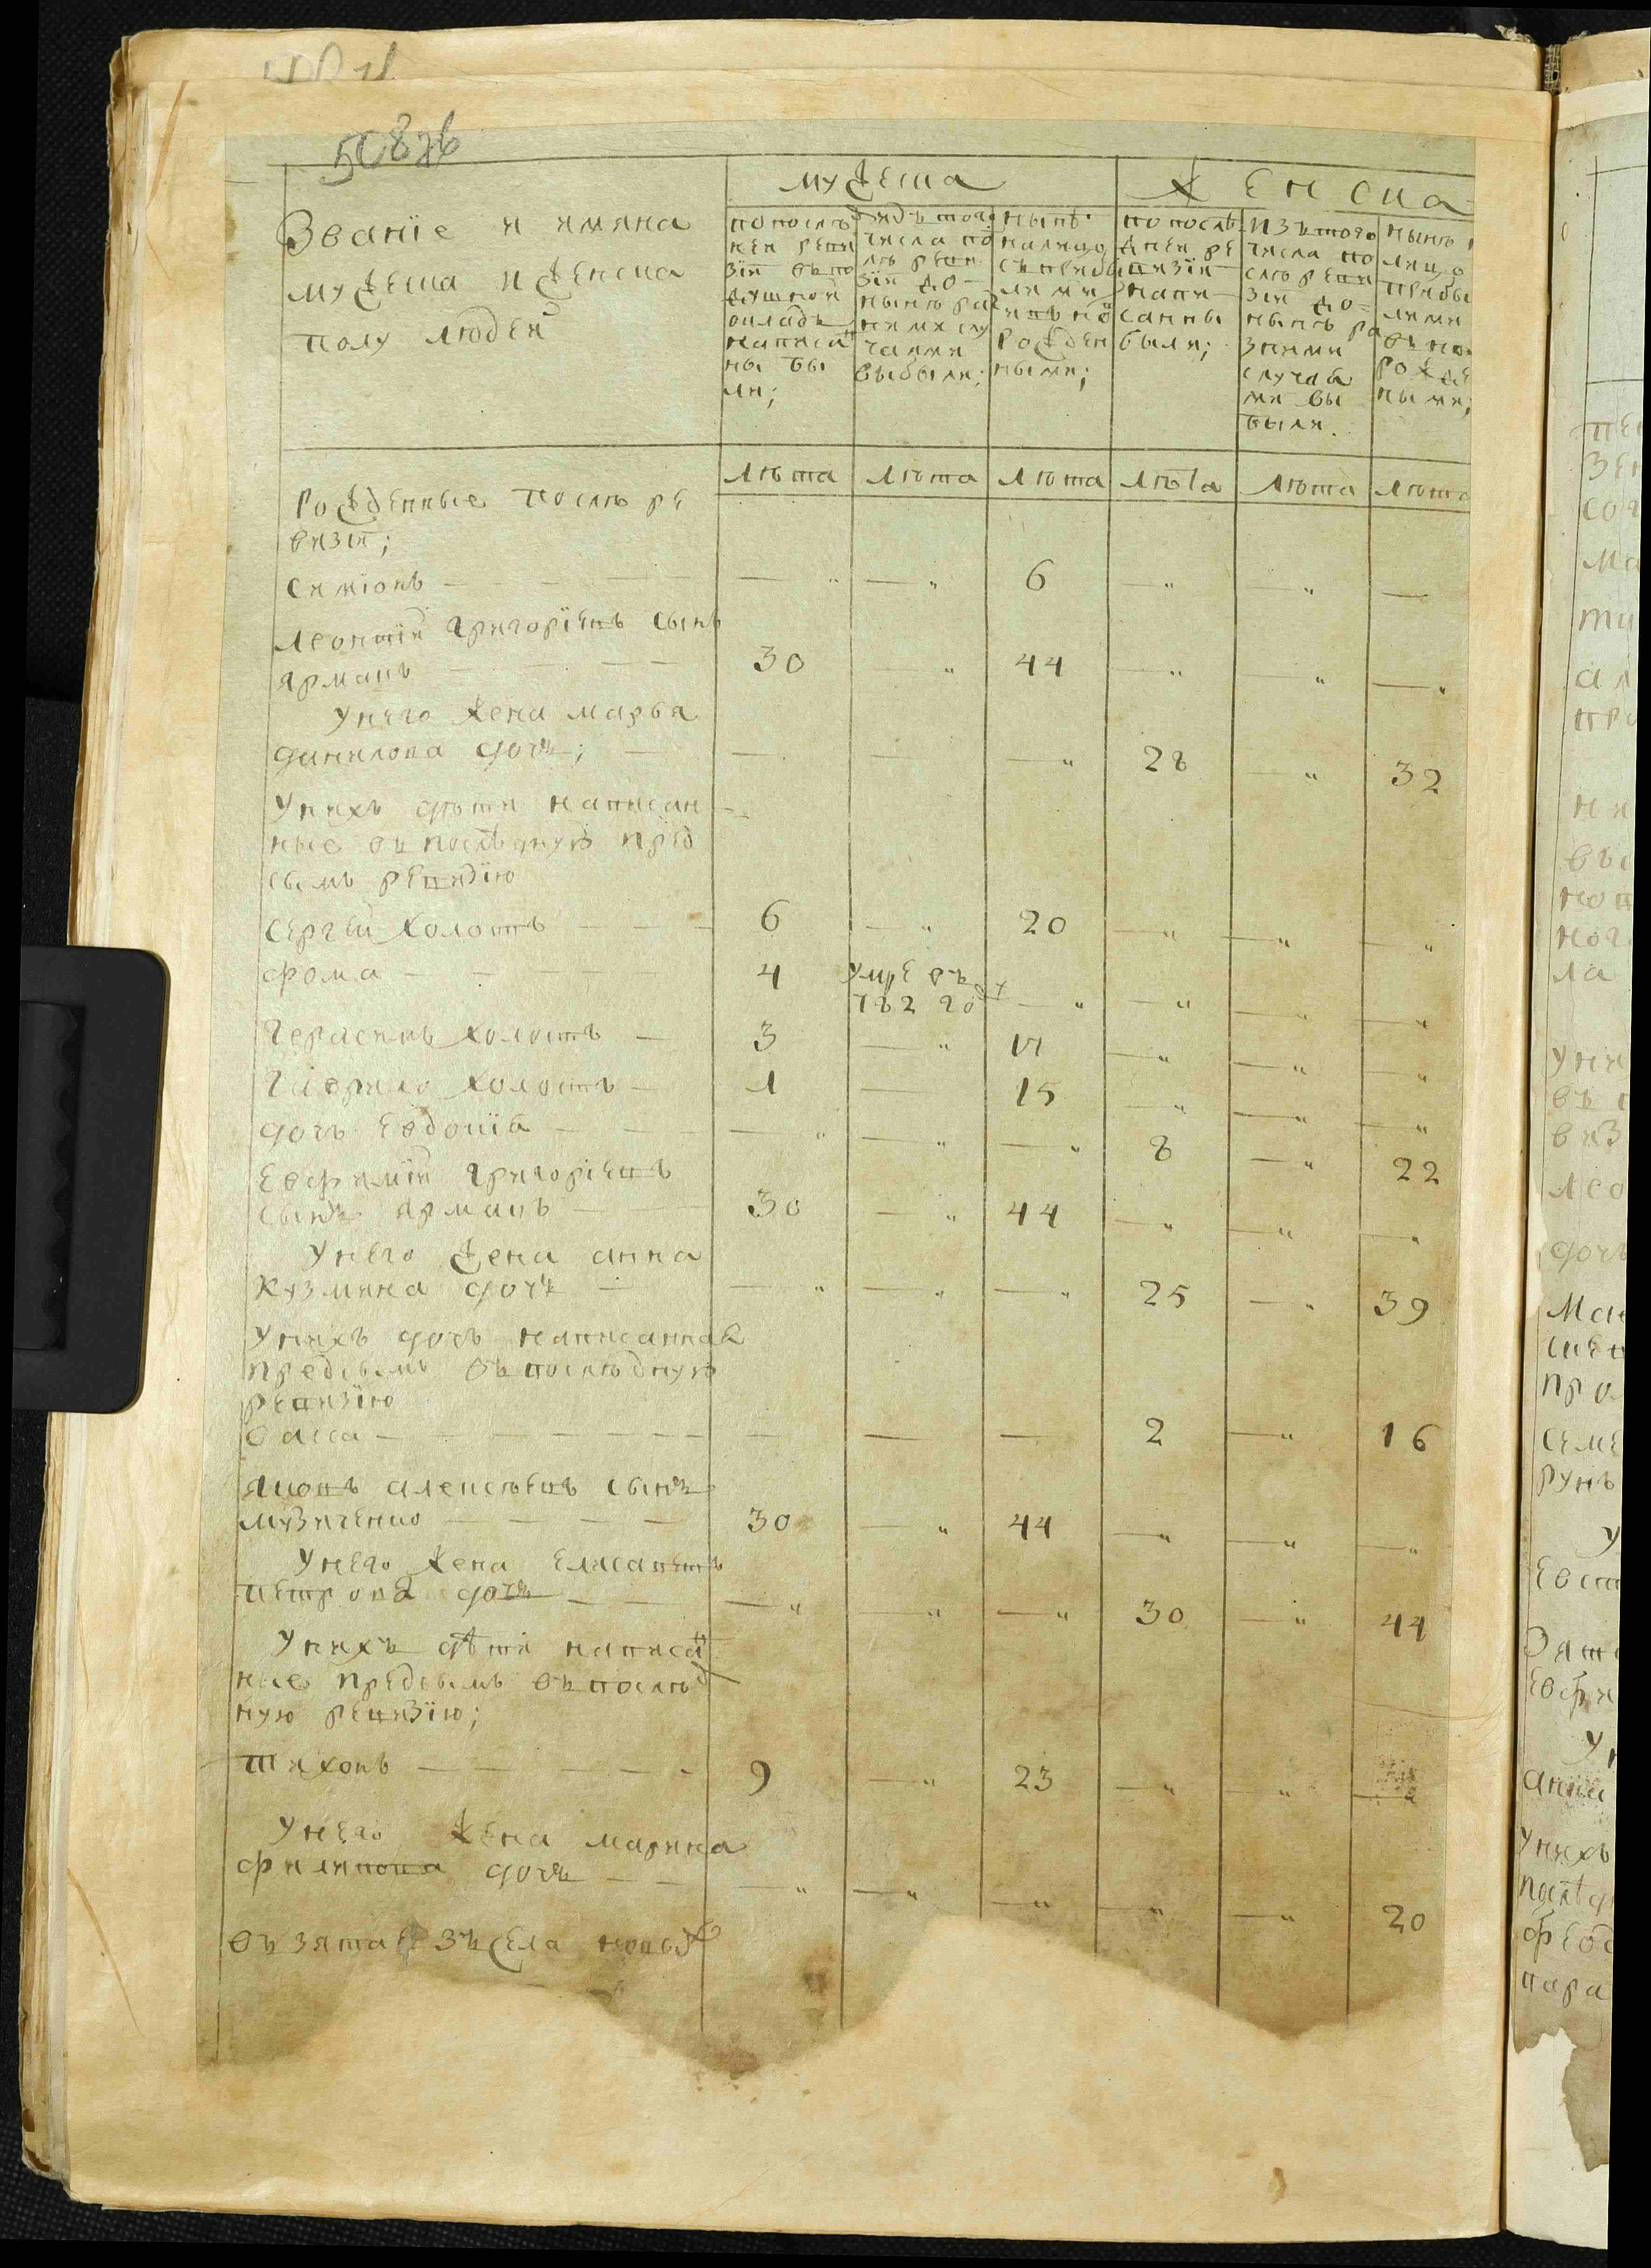 508 об
Званїе и имяна
мужеска и женска
полу людей
мужеска
женска
по послѣ
ней реви
зїи въ по
душной
окладъ
написа
ны бы
ли;
изъ того
числа по
лѣ реви
зїи до
нынѣ ра
ними слу
чаями
выбыли;
нынѣ
налицо
съ прибы
лими
и въ но
рожден
ными;
по послѣ
дней ре
визїи
напи
санны
были;
изъ того
числа по
слѣ реви
зїи до
нынѣ ра
зними
случая
ми вы
были.
нынѣ
лицо
прибы
лими
въ но
рожде
ными;
лѣта лѣта лѣта лѣта лѣта лѣта
Рожденные послѣ ре
визїи;
Симіонъ — — — — — „ — „ 6 — „ — „ —
Леонтїй Григорїевъ сынъ
Ярмакъ — — — — 30 — „ 44 — „ — „ — „
У него жена Марья
Данилова дочь; — — — — „ 28 — „ 32
У нихъ дѣти написан
ные въ послѣдную пред
симъ ревизїю
Сергей холостъ — — — 6 — „ 20 — „ — „ — „
Фома — — — — — 4 умре въ
782 год — „ — „ — „ — „
Герасимъ холостъ — 3 — „ 17 — „ — „ — „
Гаврило холостъ — 1 — 15 — „ — „ — „
дочь Евдокїя — — — — „ — „ — „ 8 — „ 22
Евфимїй Григорїевъ
сынъ Ярмакъ — — — 30 — „ 44 — „ — „ — „
У него жена Анна
Кузмина дочь — — „ — „ — „ 25 — „ 39
У нихъ дочь написанная
предсимъ въ послѣдную
ревизїю
Васса — — — — — — — — — 2 — „ 16
Яковъ Алексѣевъ сынъ
Музиченко — — — — 30 — „ 44 — „ — „ — „
У него жена Елисаветъ
Петрова дочь — — — „ — „ — „ 30 — „ 44
У нихъ дѣти написан
ные предсимъ въ послѣд
ную ревизїю;
Тихонъ — — — — — 9 — „ 23 — „ — „ — „
У него жена Марина
Филипова дочь — — — „ — „ — „ — „ — „ 20
взята зъ села